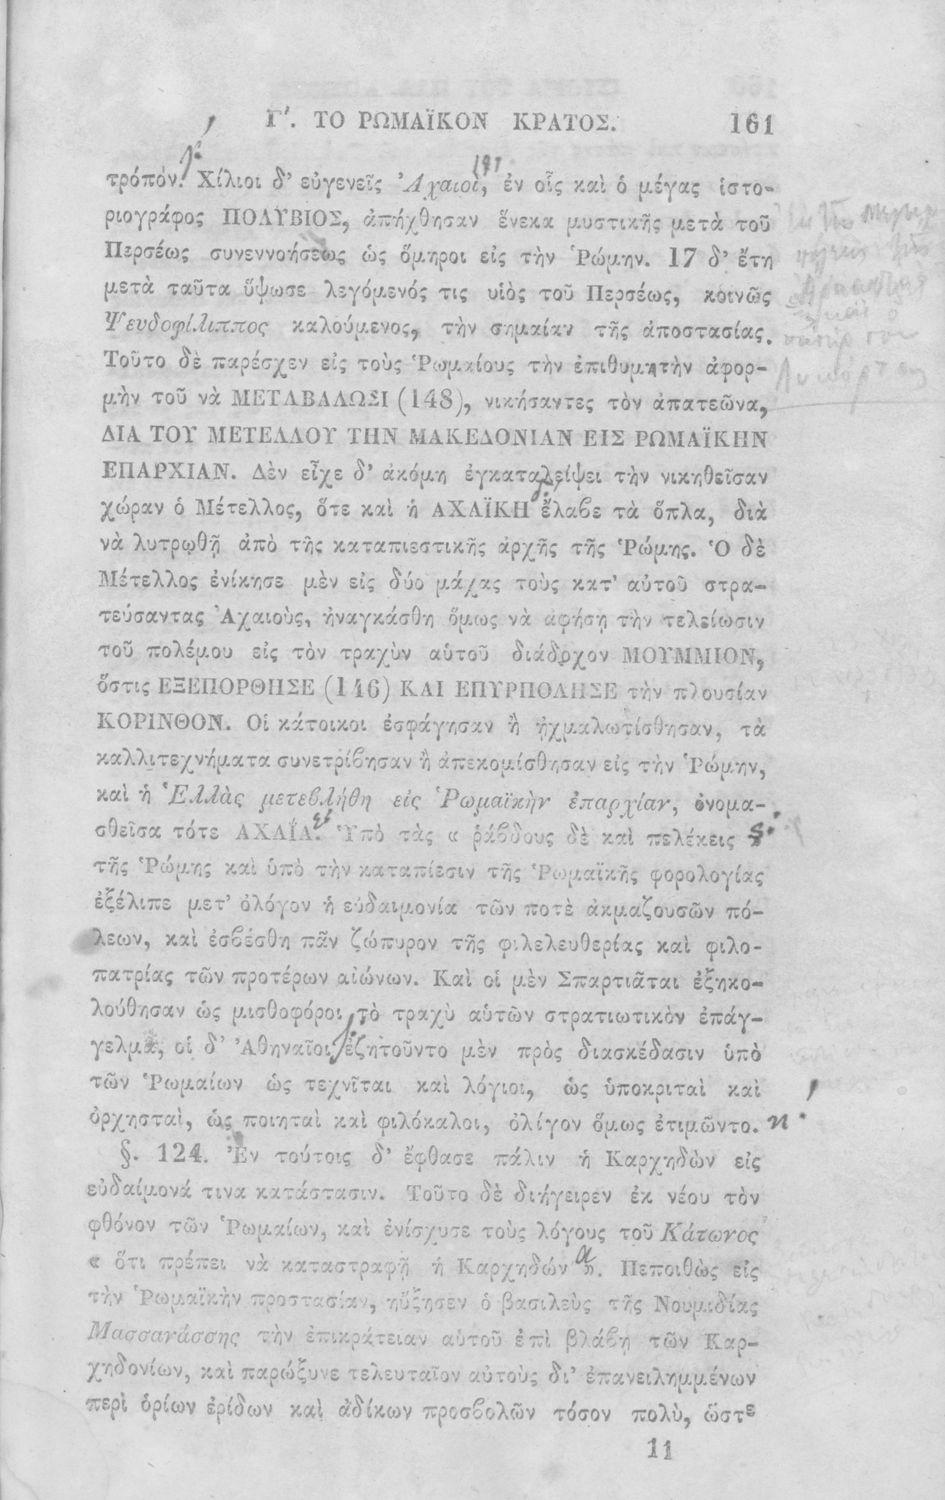 Γʹ. ΤΟ ΡΩΜΑΪΚΟΝ ΚΡΑΤΟΣ. 161
τρόπόν. Χίλιοι δ' εὐγενεῖς Ἀχαιοί, ἐν οἷς καὶ ὁ μέγας ἱστο-
ριογράφος ΠΟΛΥΒΙΟΣ, ἀπήχθησαν ἕνεκα μυστικῆς μετὰ τοῦ
Περσέως συνεννοήσεως ὡς ὅμηροι εἰς τὴν Ῥώμην. 17 δ' ἔτη
μετὰ ταῦτα ὕψωσε λεγόμενός τις υἱὸς τοῦ Περσέως, κοινῶς
Ψευδοφίλιππος καλούμενος, τὴν σημαίαν τῆς ἀποστασίας.
Τοῦτο δὲ παρέσχεν εἰς τοὺς Ῥωμαίους τὴν ἐπιθυμητὴν ἀφορ-
μὴν τοῦ νὰ ΜΕΤΑΒΑΛΩΣΙ (148), νικήσαντες τὸν ἀπατεῶνα,
ΔΙΑ ΤΟΥ ΜΕΤΕΛΛΟΥ ΤΗΝ ΜΑΚΕΔΟΝΙΑΝ ΕΙΣ ΡΩΜΑΪΚΗΝ
ΕΠΑΡΧΙΑΝ. Δὲν εἶχε δ' ἀκόμη ἐγκαταλείψει τὴν νικηθεῖσαν
χώραν ὁ Μέτελλος, ὅτε καὶ ἡ ΑΧΑΪΚΗ ἔλαβε τὰ ὅπλα, διὰ
νὰ λυτρωθῇ ἀπὸ τῆς καταπιεστικῆς ἀρχῆς τῆς Ῥώμης. Ὁ δὲ
Μέτελλος ἐνίκησε μὲν εἰς δύο μάχας τοὺς κατ' αὐτοῦ στρα-
τεύσαντας Ἀχαιοὺς, ἠναγκάσθη ὅμως νὰ ἀφήσῃ τὴν τελείωσιν
τοῦ πολέμου εἰς τὸν τραχὺν αὑτοῦ διάδοχον ΜΟΥΜΜΙΟΝ,
ὅστις ΕΞΕΠΟΡΘΗΣΕ (146) ΚΑΙ ΕΠΥΡΠΟΛΗΣΕ τὴν πλουσίαν
ΚΟΡΙΝΘΟΝ. Οἱ κάτοικοι ἐσφάγησαν ἢ ᾐχμαλωτίσθησαν, τὰ
καλλιτεχνήματα συνετρίβησαν ἢ ἀπεκομίσθησαν εἰς τὴν Ῥώμην,
καὶ ἡ Ἑλλὰς μετεβλήθη εἰς Ῥωμαϊκὴν ἐπαρχίαν, ὀνομα-
σθεῖσα τότε ΑΧΑΪΑ. Ὑπὸ τὰς « ῥάβδους δὲ καὶ πελέκεις »
τῆς Ῥώμης καὶ ὑπὸ τὴν καταπίεσιν τῆς Ῥωμαϊκῆς φορολογίας
ἐξέλιπε μετ' ὀλόγον ἡ εὐδαιμονία τῶν ποτὲ ἀκμαζουσῶν πό-
λεων, καὶ ἐσβέσθη πᾶν ζώπυρον τῆς φιλελευθερίας καὶ φιλο-
πατρίας τῶν προτέρων αἰώνων. Καὶ οἱ μὲν Σπαρτιᾶται ἐξηκο-
λούθησαν ὡς μισθοφόροι τὸ τραχὺ αὑτῶν στρατιωτικὸν ἐπάγ-
γελμα, οἱ δ' Ἀθηναῖοι ἐζητοῦντο μὲν πρὸς διασκέδασιν ὑπὸ
τῶν Ῥωμαίων ὡς τεχνῖται καὶ λόγιοι, ὡς ὑποκριταὶ καὶ
ὀρχησταὶ, ὡς ποιηταὶ καὶ φιλόκαλοι, ὀλίγον ὅμως ἐτιμῶντο.
§. 124. Ἐν τούτοις δ' ἔφθασε πάλιν ἡ Καρχηδὼν εἰς
εὐδαίμονά τινα κατάστασιν. Τοῦτο δὲ διήγειρεν ἐκ νέου τὸν
φθόνον τῶν Ῥωμαίων, καὶ ἐνίσχυσε τοὺς λόγους τοῦ Κάτωνος
« ὅτι πρέπει νὰ καταστραφῇ ἡ Καρχηδών ». Πεποιθὼς εἰς
τὴν Ῥωμαϊκὴν προστασίαν, ηὔξησεν ὁ βασιλεὺς τῆς Νουμιδίας
Μασσανάσσης τὴν ἐπικράτειαν αὑτοῦ ἐπὶ βλάβῃ τῶν Καρ-
χηδονίων, καὶ παρώξυνε τελευταῖον αὐτοὺς δι' ἐπανειλημμένων
περὶ ὁρίων ἐρίδων καὶ ἀδίκων προσβολῶν τόσον πολὺ, ὥστε
11